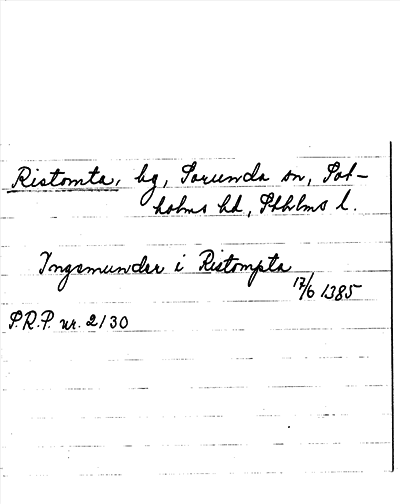 Ristomta, bg, Sorunda sn, Sot-
holms hd, Sthlms l.
Ingemunder i Ristompta
17/6 1385
S.R.P. nr. 2130